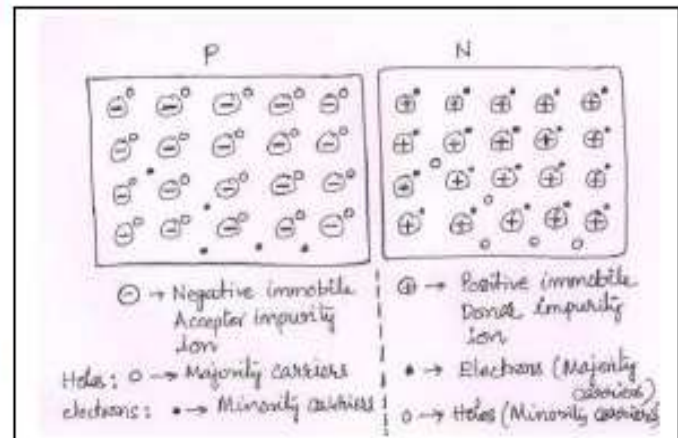 P
N
⊖ → Negative immobile
Accepter impurity
ion
Holes: o → Majority carriers
electrons: • → Minority carriers
⊕ → Positive immobile
Donor impurity
ion
• → Electrons (Majority
carriers)
o → Holes (Minority carriers)